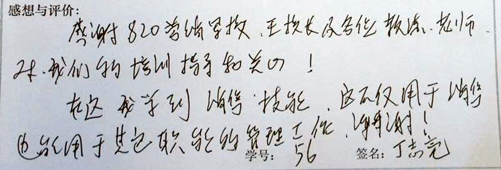 感想与评价:
感谢820营销学校，王校长及各位教练、老师
对我们的培训指导和关心！
在这我学到销售技能，这不仅用于销售
也能用于其它职能的管理工作，谢谢！
学号: 56 签名: 丁志亮